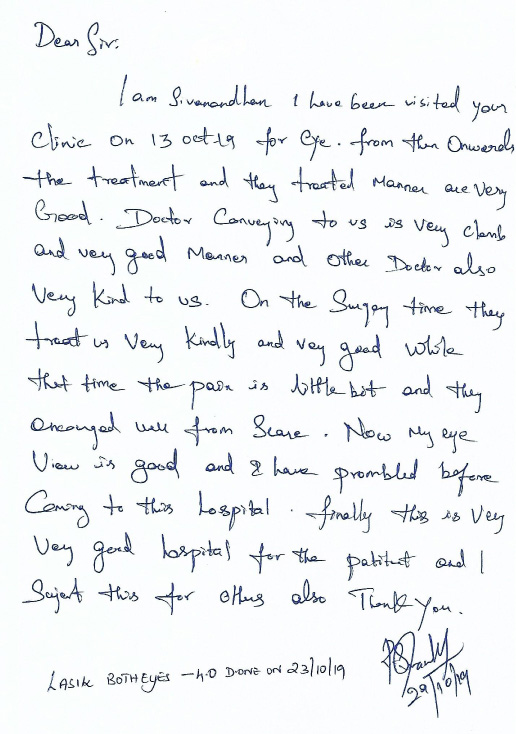 Dear Sir.
I am Sivanandhan I have been visited your
Clinic on 13 oct-19 for Eye. from then Onwards
the treatment and they treated Manner are Very
Good. Doctor Conveying to us is very clamb
and very good Manner and other Doctor also
Very Kind to us. On the Surgey time they
treat us Very Kindly and vey good while
that time the pain is little bit and they
encouraged well from Scare. Now My eye
View is good and I have prombled before
Coming to this hospital. finally this is Very
Very good hospital for the patitut and I
Sujert this for others also Thank You.
LASIK BOTH EYES - 4.0 DONE ON 23/10/19
29/10/19